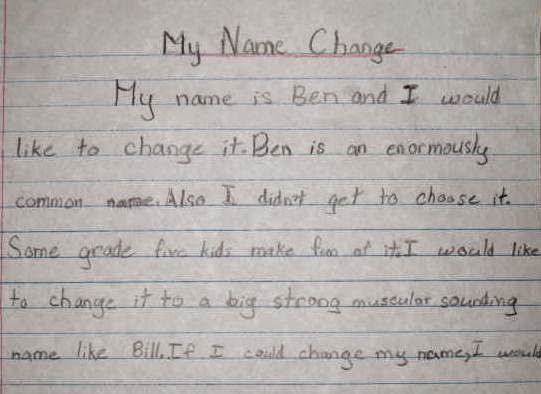 My Name Change
My name is Ben and I would
like to change it. Ben is an enormously
common name. Also I didn't get to choose it.
Some grade five kids make fun of it. I would like
to change it to a big strong muscular sounding
name like Bill. If I could change my name, I would